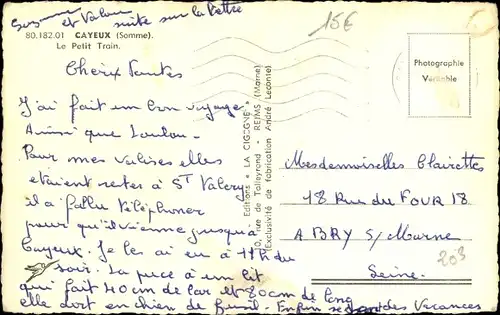 Somme et Valou suite sur la lettre
15€
80.182.01 CAYEUX (Somme).
Le Petit Train.
Photographie
Véritable
Cherix Tantes
J'ai fait un bon voyage
Ainsi que Loulou -
Pour mes valises elles
etaient restes à St Valery
il a fallu téléphoner
pour qu'il vienne jusqu'à
Cayeux. Je les ai eu à 11h du
soir. La puce a un lit
qui fait 40 cm de lar et 80 cm de long
elle dort en chien de fusil - Enfin se sont des Vacances
Editions "LA CIGOGNE"
0, rue de Talleyrand - REIMS (Marne)
(Exclusivité de fabrication André Leconte)
Mesdemoiselles Clairettes
18 Rue du FOUR 18
A BRY S/ Marne
Seine.
203